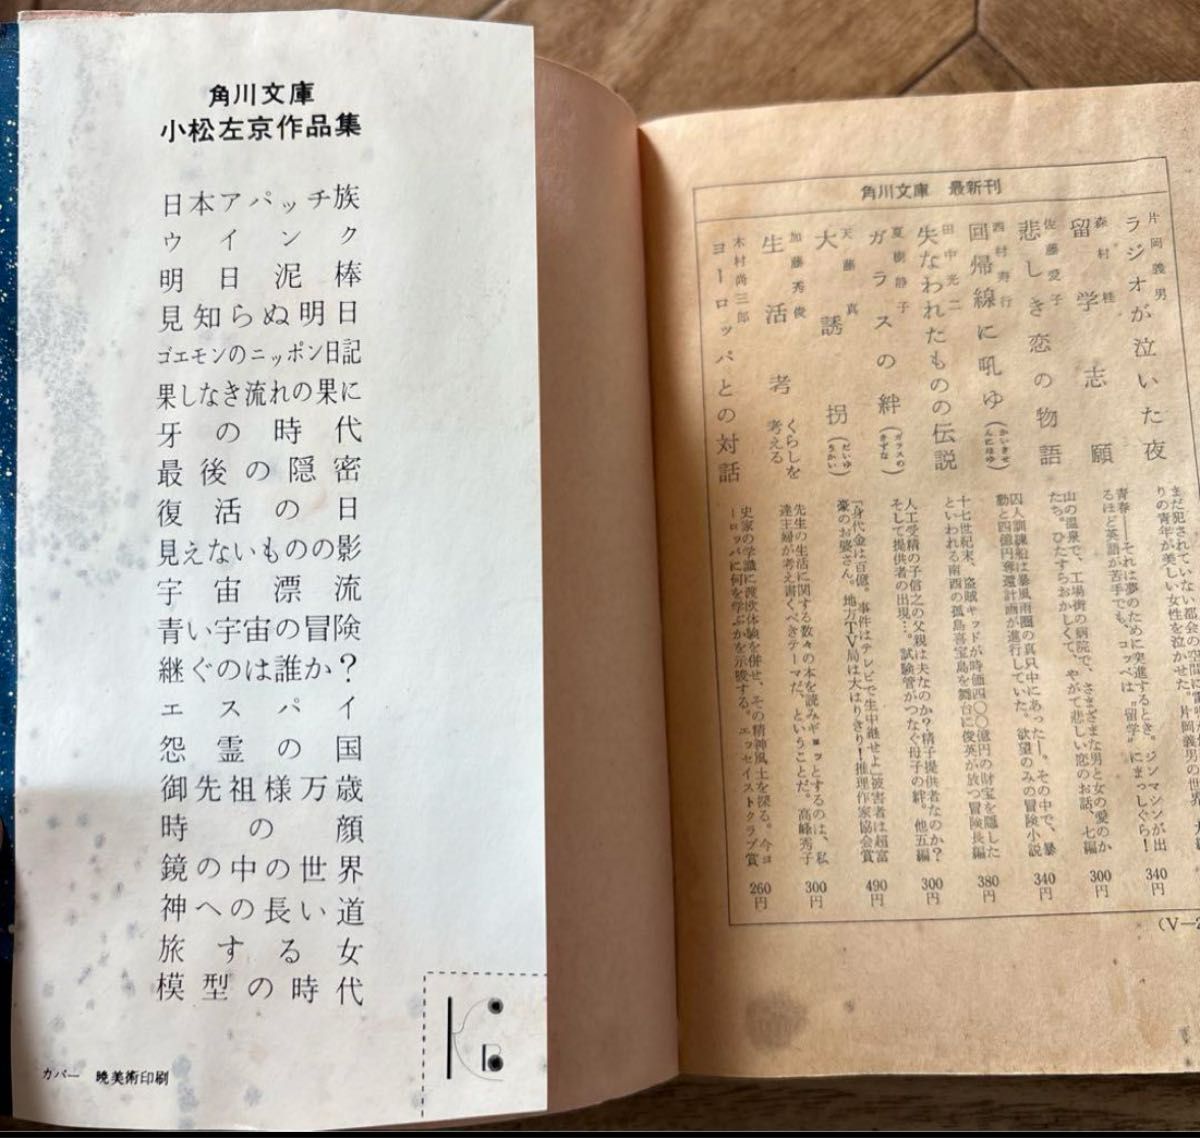 角川文庫
小松左京作品集
日本アパッチ族
ウインク
明日泥棒
見知らぬ明日
ゴエモンのニッポン日記
果しなき流れの果に
牙の時代
最後の隠密
復活の日
見えないものの影
宇宙漂流
青い宇宙の冒険
継ぐのは誰か？
エスパイ
怨霊の国
御先祖様万歳
時の顔
鏡の中の世界
神への長い道
旅する女
模型の時代
カバー 暁美術印刷
K
B
角川文庫 最新刊
片岡義男
ラジオが泣いた夜
まだ犯されていない都会の空間に
りの青年が美しい女性を泣かせた。片岡義男の世界。
340円
森村桂
留学志願
青春――それは夢のために突進するとき。ジンマシンが出
るほど英語が苦手でも、コッペは〝留学〟にまっしぐら！
300円
佐藤愛子
悲しき恋の物語
山の温泉で、工場街の病院で、さまざまな男と女の愛のか
たち。ひたすらおかしくて、やがて悲しい恋のお話、七編
340円
西村寿行
回帰線に吼ゆ（かいきせんにほゆ）
囚人訓練船は暴風雨圏の真只中にあった――。その中で、暴
動と四億円奪還計画が進行していた。欲望のみの冒険小説
380円
田中光二
失なわれたものの伝説
十七世紀末、盗賊キッドが時価四〇〇億円の財宝を隠した
といわれる南西の孤島喜宝島を舞台に俊英が放つ冒険長編
300円
夏樹静子
ガラスの絆（ガラスのきずな）
人工受精の子信之の父親は夫なのか？精子提供者なのか？
そして提供者の出現…。試験管がつなぐ母子の絆。他五編
490円
天藤真
大誘拐（だいゆうかい）
「身代金は百億。事件はテレビで生中継せよ」被害者は超富
豪のお婆さん。地方TV局は大はりきり！推理作家協会賞
300円
加藤秀俊
生活考 くらしを考える
先生の生活に関する数々の本を読みギョッとするのは、私
達主婦が考え書くべきテーマだ、ということだ。高峰秀子
260円
木村尚三郎
ヨーロッパとの対話
史家の学識に渡欧体験を併せ、その精神風土を探る。今ヨ
ーロッパに何を学ぶかを示唆する。エッセイストクラブ賞